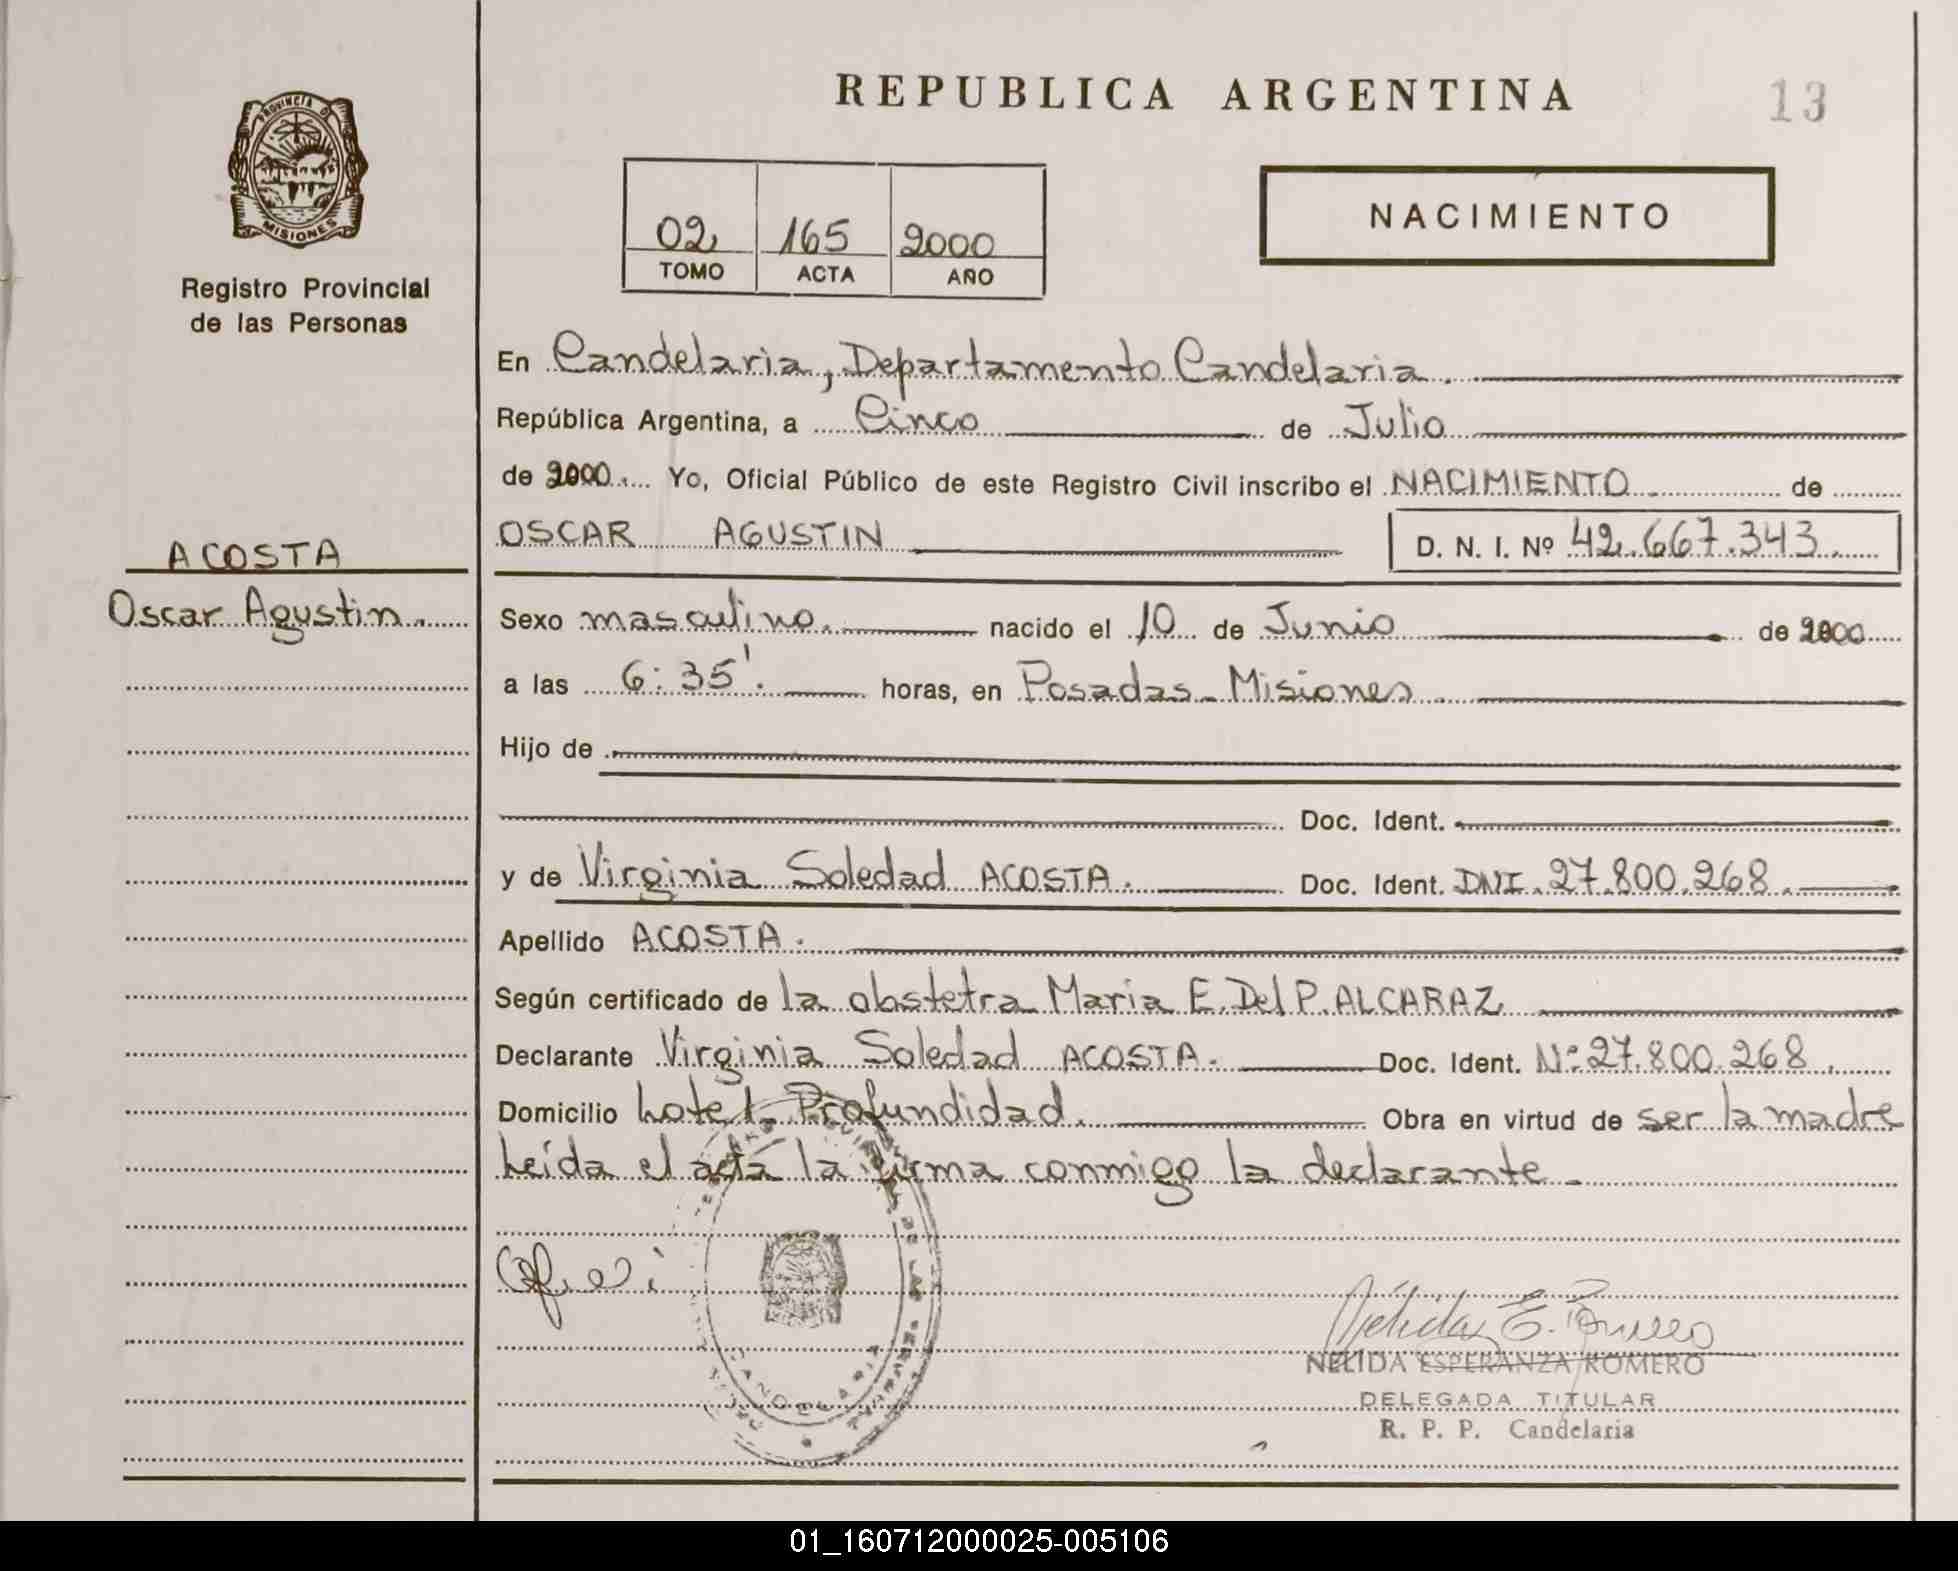 REPUBLICA ARGENTINA
13
PROVINCIA DE
MISIONES
Registro Provincial
de las Personas
02 165 2000
TOMO ACTA AÑO
NACIMIENTO
En Candelaria, Departamento Candelaria.
República Argentina, a Cinco de Julio
de 2000. Yo, Oficial Público de este Registro Civil inscribo el NACIMIENTO de
OSCAR AGUSTIN D. N. I. Nº 42.667.343
ACOSTA
Oscar Agustin.
Sexo masculino. nacido el 10 de Junio de 2000
a las 6:35'. horas, en Posadas - Misiones
Hijo de
Doc. Ident.
y de Virginia Soledad ACOSTA. Doc. Ident. DNI. 27.800.268.
Apellido ACOSTA.
Según certificado de la obstetra Maria E. Del P. ALCARAZ
Declarante Virginia Soledad ACOSTA. Doc. Ident. Nº 27.800.268.
Domicilio Lote 1. Profundidad. Obra en virtud de ser la madre
Leída el acta la firma conmigo la declarante.
CANDELARIA
NELIDA ESPERANZA ROMERO
DELEGADA TITULAR
R. P. P. Candelaria
01_160712000025-005106